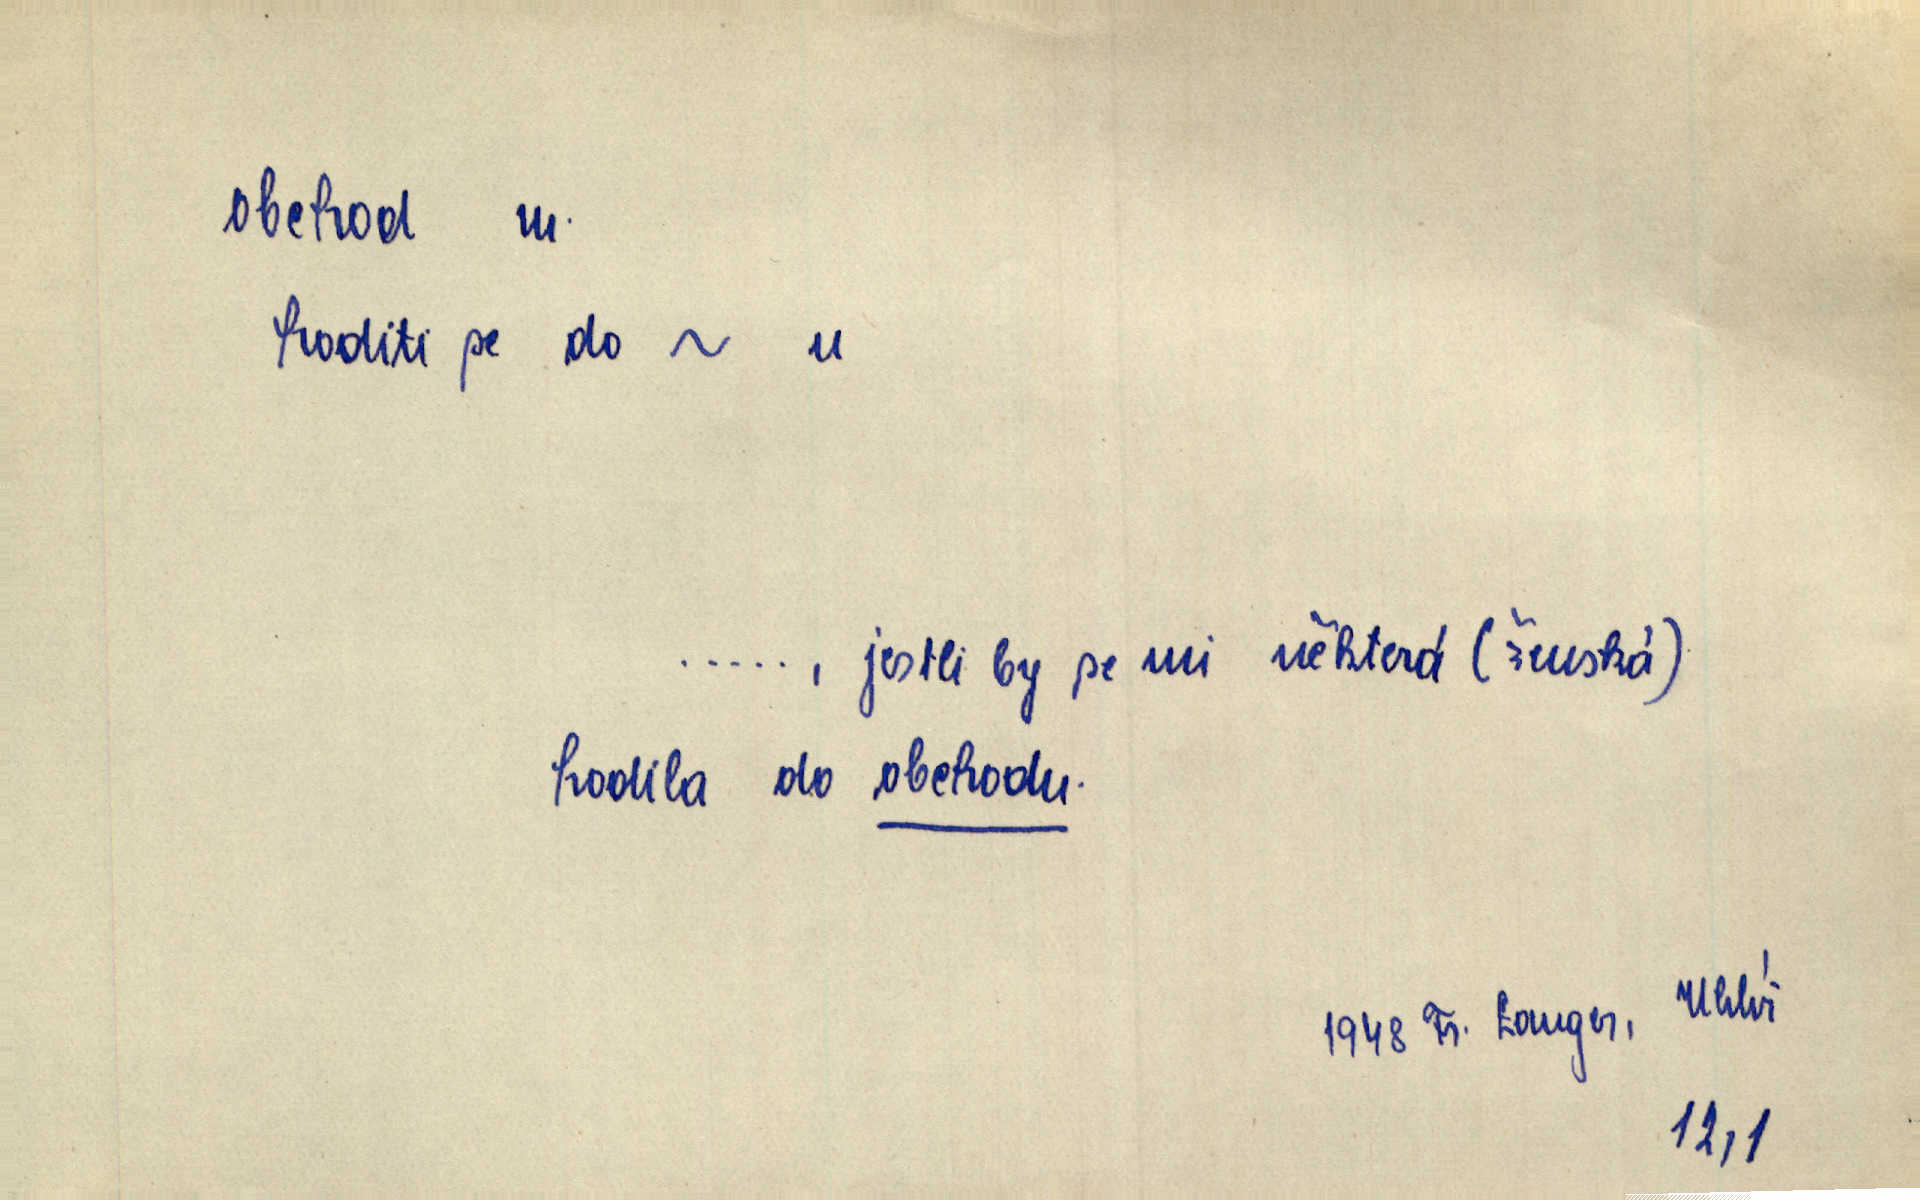 obchod m.
hoditi se do ~ u
....., jestli by se mi některá (ženská)
hodila do obchodu.
1948 Fr. Langer,
12,1